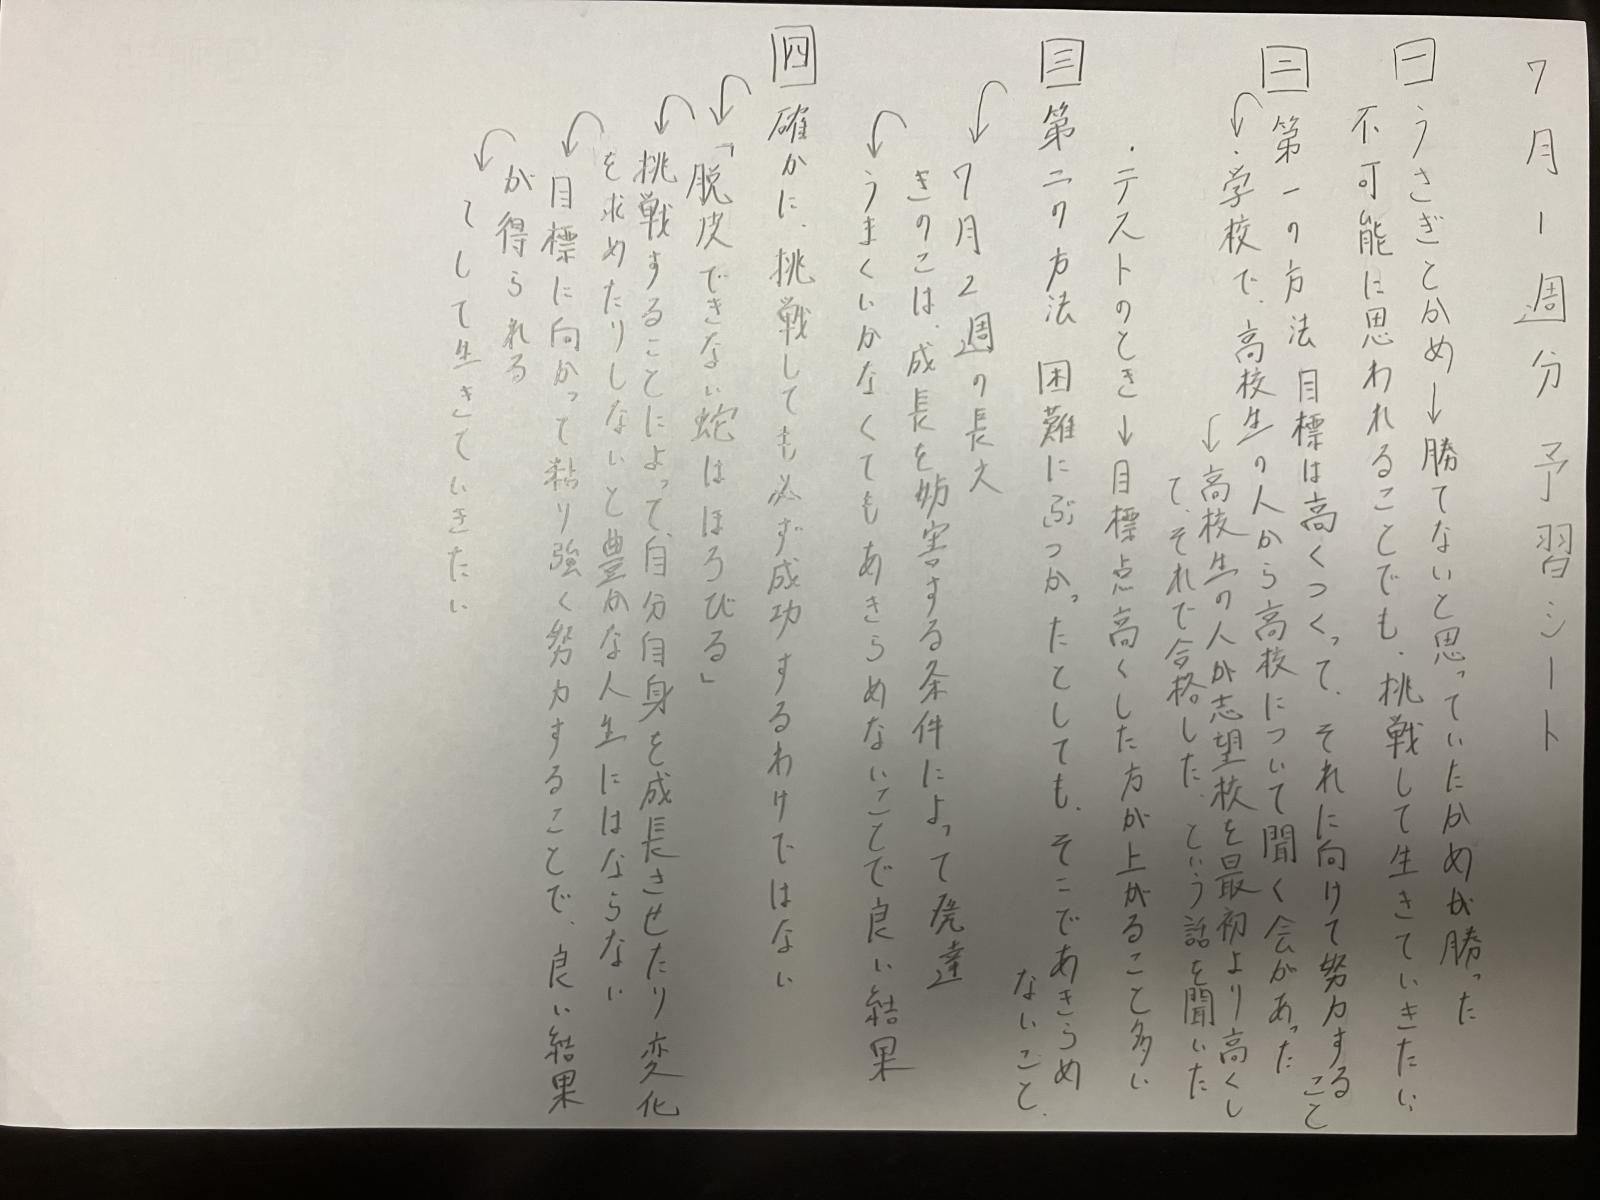 7月1週分予習シート
一 うさぎとかめ→勝てないと思っていたかめが勝った
不可能に思われることでも、挑戦して生きていきたい
二 第一の方法 目標は高くつくって、それに向けて努力すること
・学校で、高校生の人から高校について聞く会があった
→高校生の人が志望校を最初より高くし
て、それで合格した、という話を聞いた
・テストのとき→目標点高くした方が上がること多い
三 第二の方法 困難にぶつかったとしても、そこであきらめ
ないこと、
7月2週の長文
きのこは、成長を妨害する条件によって発達
うまくいかなくてもあきらめないことで良い結果
四 確かに、挑戦しても必ず成功するわけではない
「脱皮できない蛇はほろびる」
挑戦することによって、自分自身を成長させたり変化
を求めたりしないと豊かな人生にはならない
目標に向かって粘り強く努力することで、良い結果
が得られる
てして生きていきたい